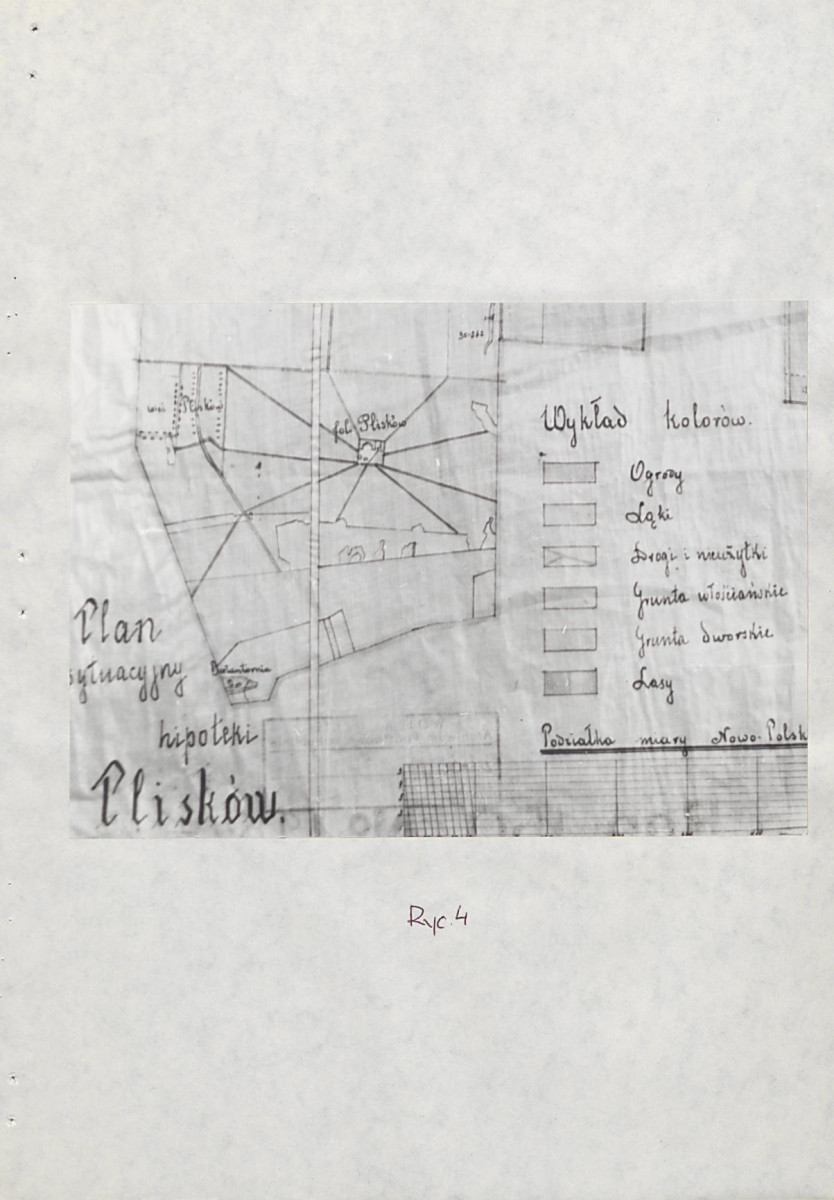 wieś Plisków
fol. Plisków
Wykład kolorów.
Ogrody
Łąki
Drogi i nieużytki
Grunta włościańskie
Grunta dworskie
Lasy
Podziałka miary Nowo-Polsk
Plan
sytuacyjny
hipoteki
Plisków.
Ryc. 4